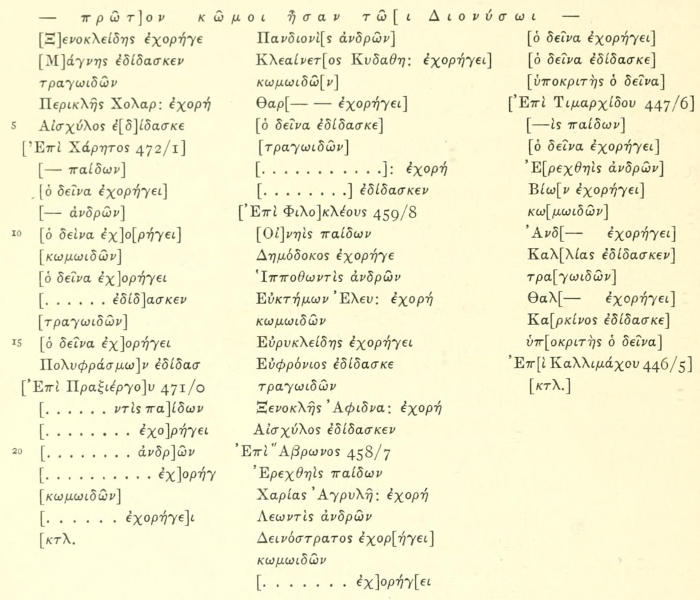 — πρῶτ]ον κῶμοι ἦσαν τῶ[ι Διονύσωι —
[Ξ]ενοκλείδης ἐχορήγε
[Μ]άγνης ἐδίδασκεν
τραγωιδῶν
Περικλῆς Χολαρ: ἐχορή
5 Αἰσχύλος ἐ[δ]ίδασκε
[Ἐπὶ Χάρητος 472/1]
[— παίδων]
[ὁ δεῖνα ἐχορήγει]
[— ἀνδρῶν]
10 [ὁ δεῖνα ἐχ]ο[ρήγει]
[κωμωιδῶν]
[ὁ δεῖνα ἐχ]ορήγει
[. . . . . . ἐδίδ]ασκεν
[τραγωιδῶν]
15 [ὁ δεῖνα ἐχ]ορήγει
Πολυφράσμω]ν ἐδίδασ
[Ἐπὶ Πραξιέργο]υ 471/0
[. . . . . . ντὶς πα]ίδων
[. . . . . . . ἐχο]ρήγει
20 [. . . . . . . ἀνδρ]ῶν
[. . . . . . . . . . ἐχ]ορήγ
[κωμωιδῶν]
[. . . . . . ἐχορήγε]ι
[κτλ.
Πανδιονὶ[ς ἀνδρῶν]
Κλεαίνετ[ος Κυδαθη: ἐχορήγει]
κωμωιδῶ[ν]
Θαρ[— — ἐχορήγει]
[ὁ δεῖνα ἐδίδασκε]
[τραγωιδῶν]
[. . . . . . . . . . .]: ἐχορή
[. . . . . . . .] ἐδίδασκεν
[Ἐπὶ Φιλο]κλέους 459/8
[Οἰ]νηὶς παίδων
Δημόδοκος ἐχορήγε
Ἱπποθωντὶς ἀνδρῶν
Εὐκτήμων Ἐλευ: ἐχορή
κωμωιδῶν
Εὐρυκλείδης ἐχορήγει
Εὐφρόνιος ἐδίδασκε
τραγωιδῶν
Ξενοκλῆς Ἀφιδνα: ἐχορή
Αἰσχύλος ἐδίδασκεν
Ἐπὶ Ἅβρωνος 458/7
Ἐρεχθηὶς παίδων
Χαρίας Ἀγρυλῆ: ἐχορή
Λεωντὶς ἀνδρῶν
Δεινόστρατος ἐχορ[ήγει]
κωμωιδῶν
[. . . . . . . ἐχ]ορήγ[ει
[ὁ δεῖνα ἐχορήγει]
[ὁ δεῖνα ἐδίδασκε]
[ὑποκριτὴς ὁ δεῖνα]
[Ἐπὶ Τιμαρχίδου 447/6]
[—ὶς παίδων]
[ὁ δεῖνα ἐχορήγει]
Ἐ[ρεχθηὶς ἀνδρῶν]
Βίω[ν ἐχορήγει]
κω[μωιδῶν]
Ἀνδ[— ἐχορήγει]
Καλ[λίας ἐδίδασκεν]
τρα[γωιδῶν]
Θαλ[— ἐχορήγει]
Κα[ρκίνος ἐδίδασκε]
ὑπ[οκριτὴς ὁ δεῖνα]
Ἐπ[ὶ Καλλιμάχου 446/5]
[κτλ.]